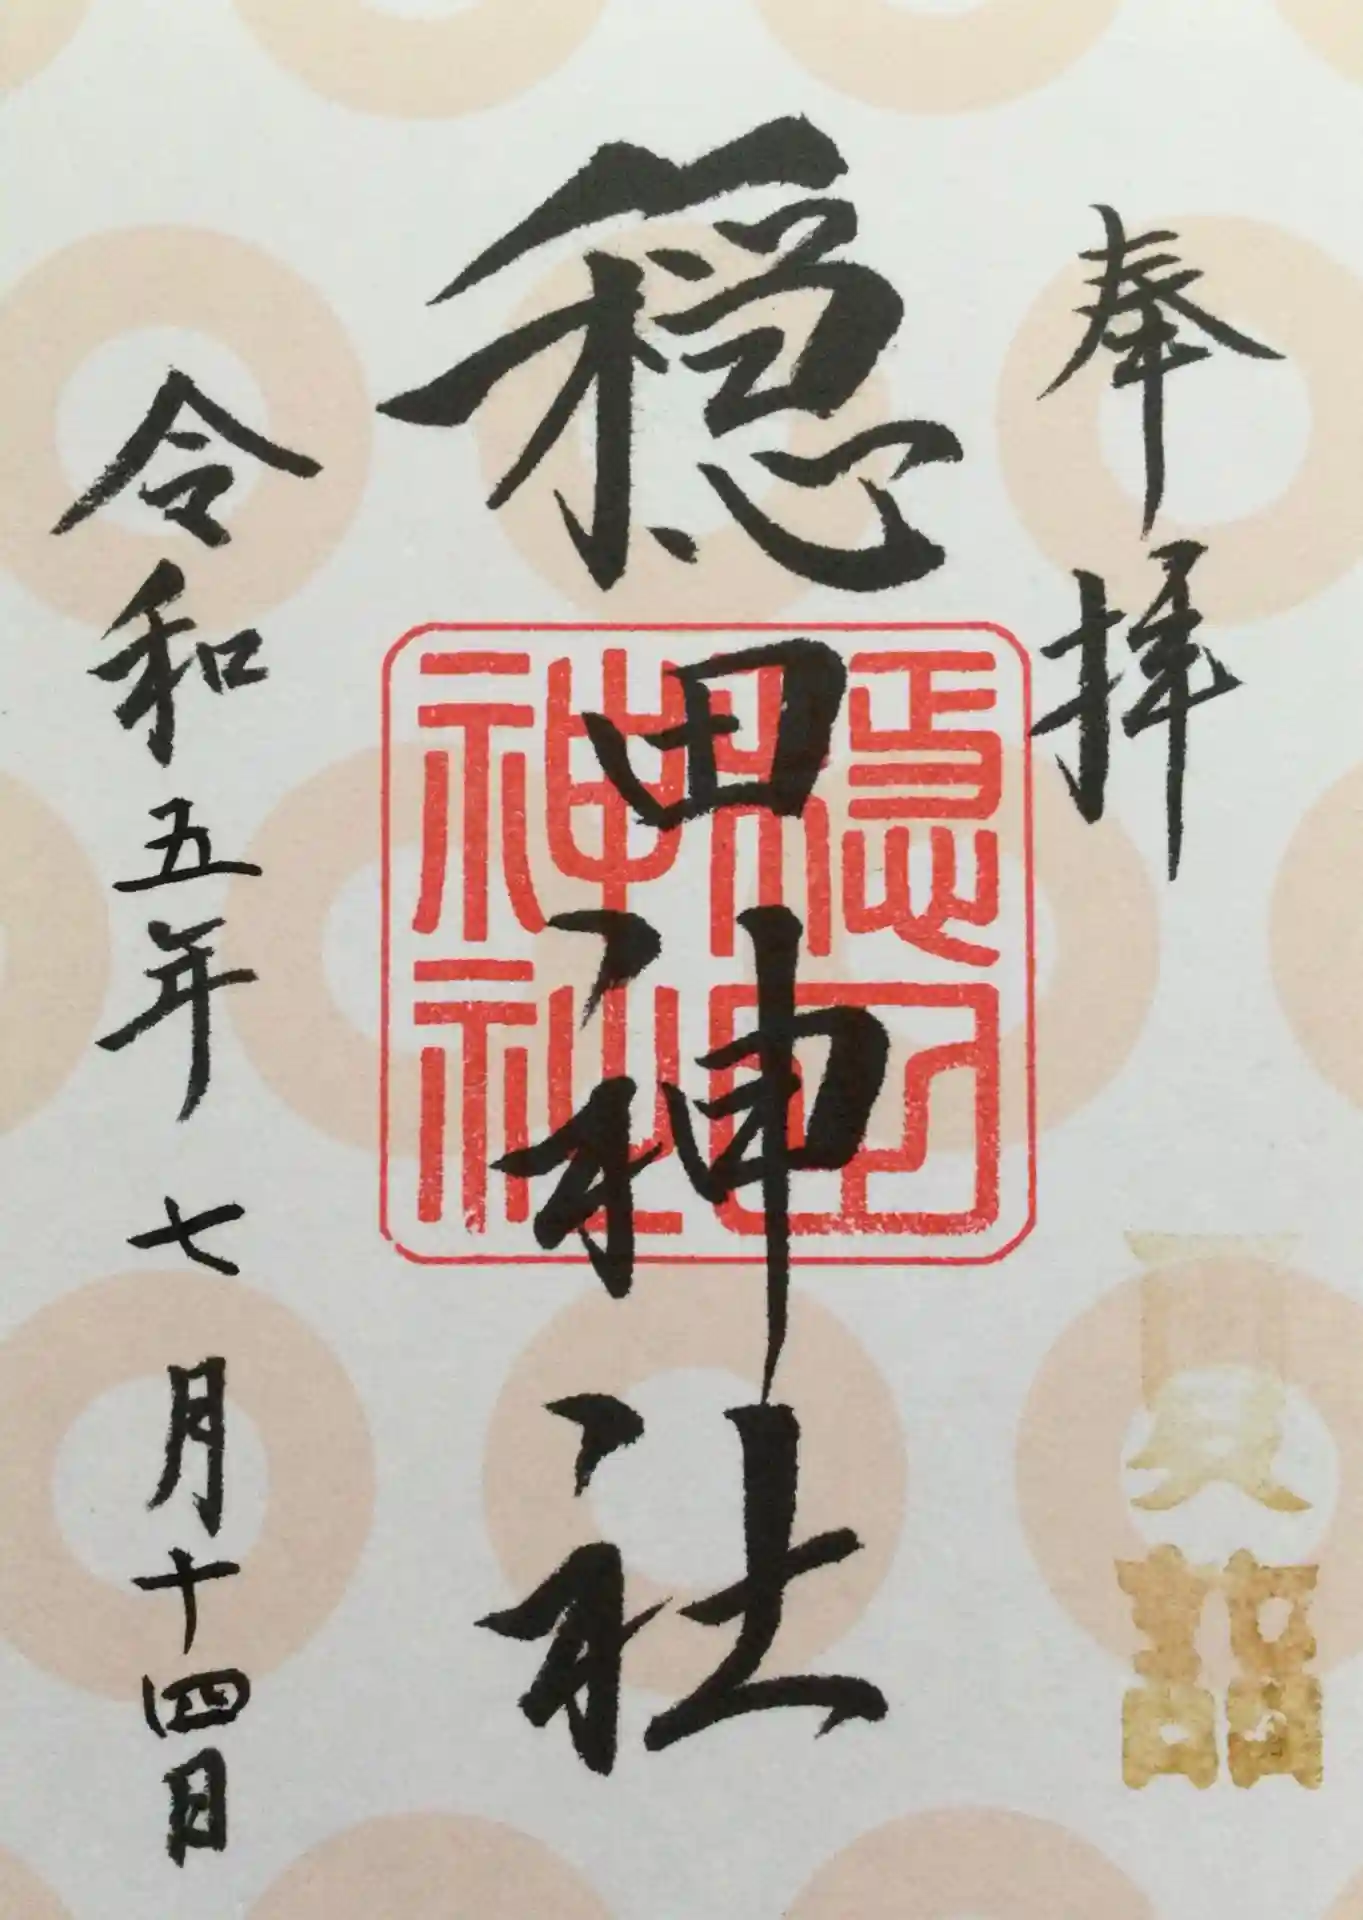 奉拝
夏詣
穏田神社
穏田神社
令和五年 七月十四日